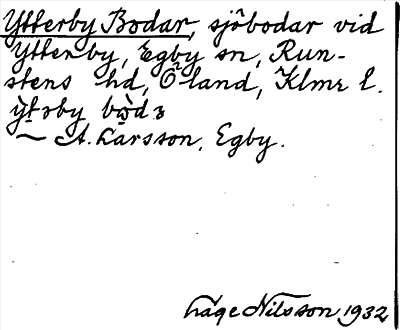 Ytterby Bodar, sjöbodar vid
Ytterby, Egby sn, Run-
stens hd, Öland, Klmr l.
A. Larsson, Egby.
Lage Nilsson 1932